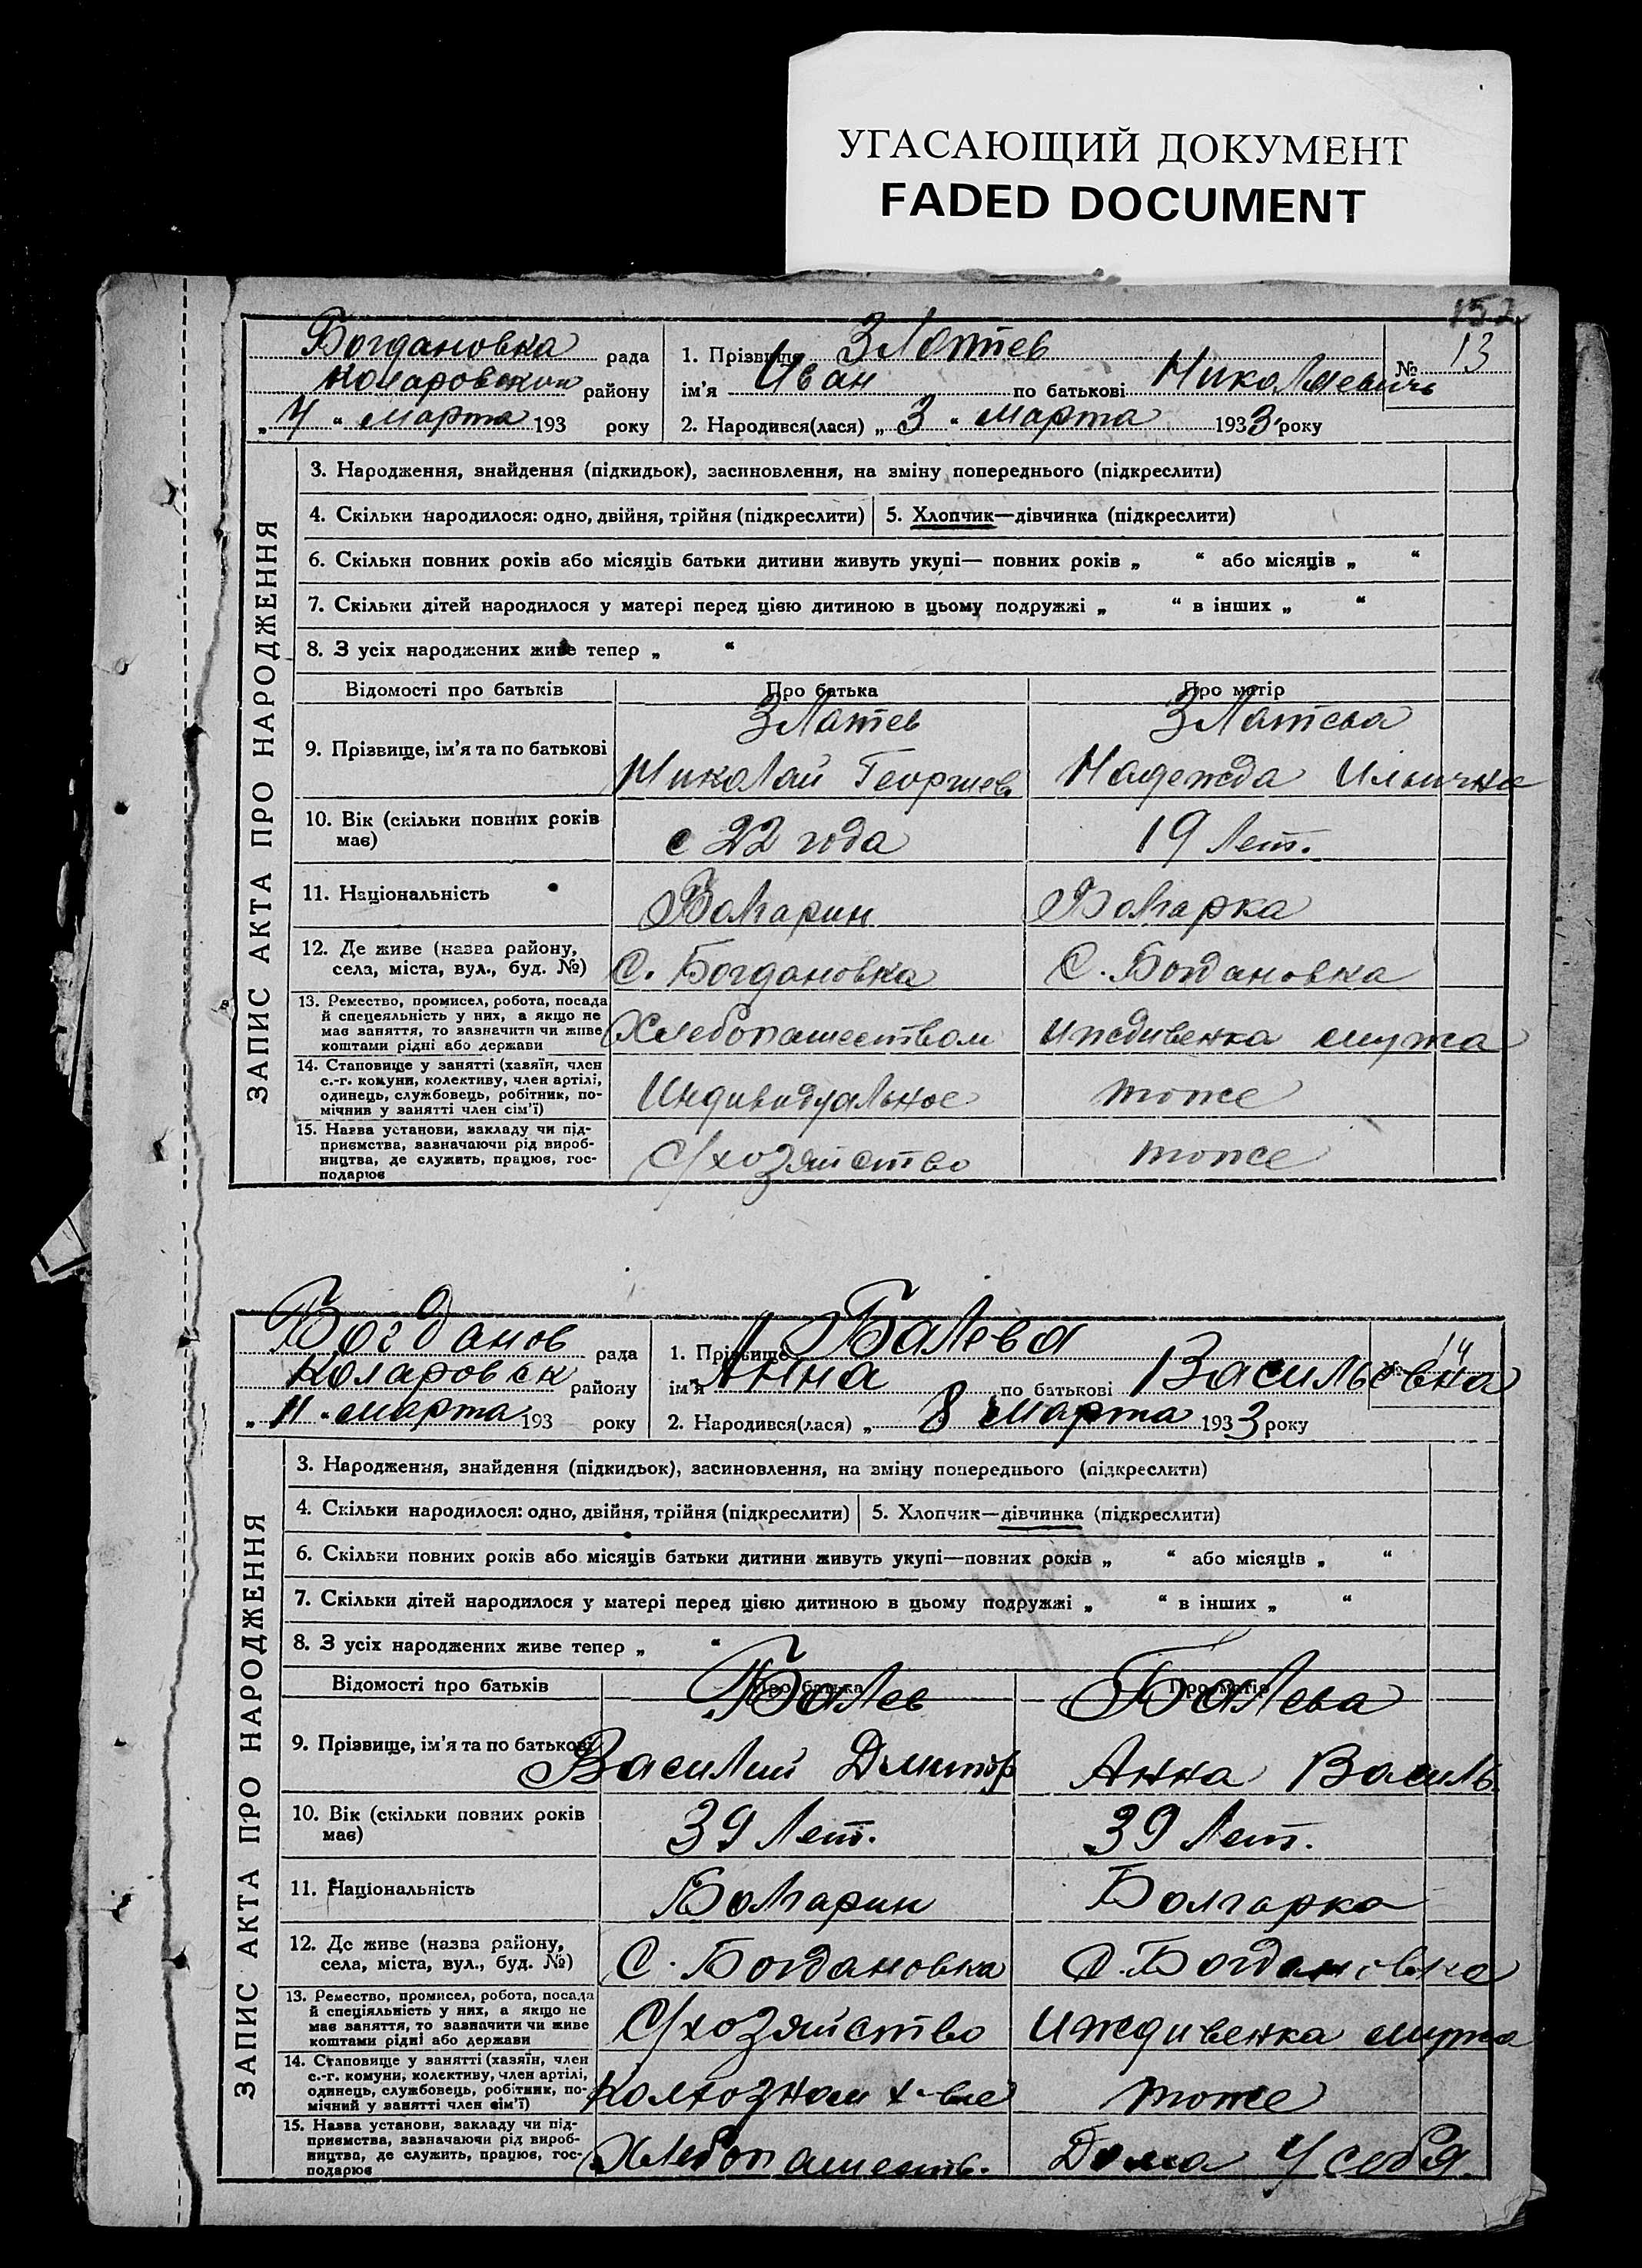 УГАСАЮЩИЙ ДОКУМЕНТ
FADED DOCUMENT
152
Богдановка рада
Коларовском району
„ 4 “ марта 193 року
1. Прізвище Златев
ім’я Иван по батькові Николаевичь
2. Народився(лася) „ 3 “ марта 1933 року
№ 13
ЗАПИС АКТА ПРО НАРОДЖЕННЯ
3. Народження, знайдення (підкидьок), засиновлення, на зміну попереднього (підкреслити)
4. Скільки народилося: одно, двійня, трійня (підкреслити) 5. Хлопчик—дівчинка (підкреслити)
6. Скільки повних років або місяців батьки дитини живуть укупі— повних років „ “ або місяців „ “
7. Скільки дітей народилося у матері перед цією дитиною в цьому подружжі „ “ в інших „ “
8. З усіх народжених живе тепер „ “
Відомості про батьків Про батька Про матір
Златев Златева
9. Прізвище, ім’я та по батькові Николай Георгиев Надежда Ильична
10. Вік (скільки повних років
має) с 22 года 19 Лет.
11. Національність Болгарин Болгарка
12. Де живе (назва району,
села, міста, вул., буд. №) С. Богдановка С. Богдановка
13. Ремество, промисел, робота, посада
й спецеяльність у них, а якщо не
має заняття, то зазначити чи живе
коштами рідні або держави Хлебопашеством Иждивенка мужа
14. Становище у занятті (хазяїн, член
с.-г. комуни, колективу, член артілі,
одинець, службовець, робітник, по-
мічнив у занятті член сім’ї) Индивидуальное тоже
15. Назва установи, закладу чи під-
приємства, вазначаючи рід вироб-
ництва, де служить, працює, гос-
подарює С/хозяйство тоже
Богданов рада
Коларовск району
„ 11 “ марта 193 року
1. Прізвище Балева
ім’я Анна по батькові Васильовна
2. Народився(лася) „ 8 марта 1933 року
14
ЗАПИС АКТА ПРО НАРОДЖЕННЯ
3. Народження, знайдення (підкидьок), засиновлення, на зміну попереднього (підкреслити)
4. Скільки народилося: одно, двійня, трійня (підкреслити) 5. Хлопчик—дівчинка (підкреслити)
6. Скільки повних років або місяців батьки дитини живуть укупі—повних років „ “ або місяців „ “
7. Скільки дітей народилося у матері перед цією дитиною в цьому подружжі „ “ в інших „ “
8. З усіх народжених живе тепер „ “
Відомості про батьків Про батька Про матір
Балев Балева
9. Прізвище, ім’я та по батькові Василий Дмитр Анна Василь
10. Вік (скільки повних років
має) 39 Лет. 39 Лет.
11. Національність Болгарин Болгарка
12. Де живе (назва району,
села, міста, вул., буд. №) С. Богдановка С. Богдановка
13. Ремество, промисел, робота, посада
й спеціяльність у них, а якщо не
має заняття, то зазначити чи живе
коштами рідні або держави С/хозяйство Иждивенка мужа
14. Становище у занятті (хазяїн, член
с.-г. комуни, колективу, член артілі,
одинець, службовець, робітник, по-
мічний у занятті член сім’ї) Колхозном х-ве тоже
15. Назва установи, закладу чи під-
приємства, вазначаючи рід вироб-
ництва, де служить, працює, гос-
подарює Хлебопашеств. Дома У себя.